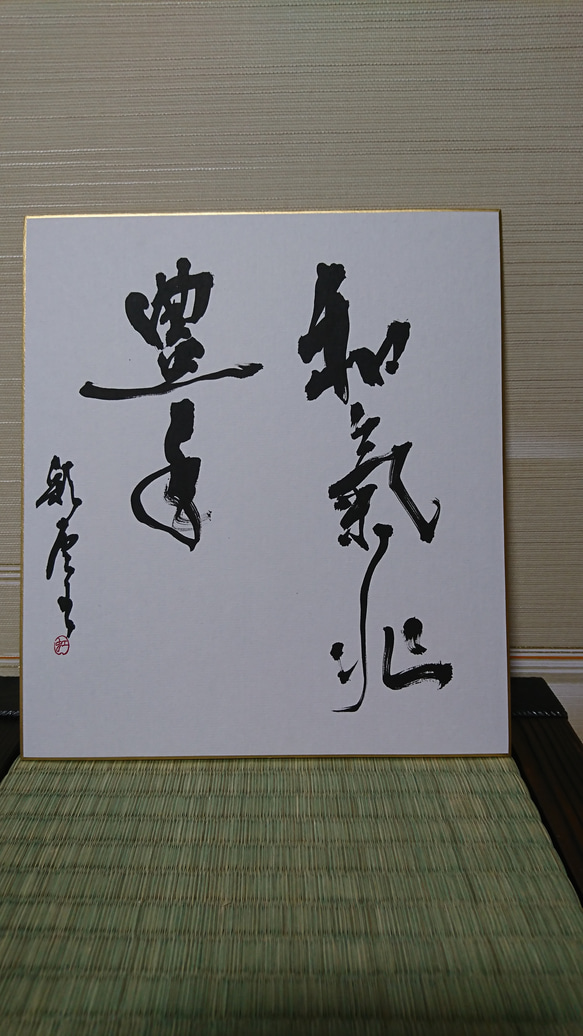 和氣兆
豊年